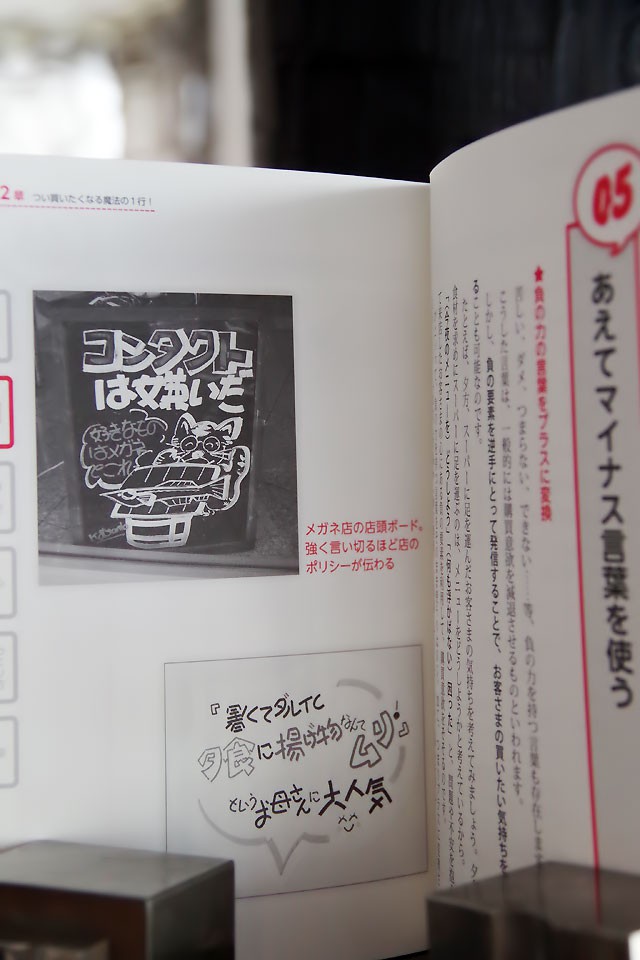 05
あえてマイナス言葉を使う
★負の力の言葉をプラスに変換
苦しい、ダメ、つまらない、できない……等、負の力を持つ言葉も存在します
こうした言葉は、一般的には購買意欲を減退させるものといわれます。
しかし、負の要素を逆手にとって発信することで、お客さまの買いたい気持ちを
ることも可能なのです。
たとえば、夕方、スーパーに足を運んだお客さまの気持ちを考えてみましょう。夕
食材を求めにスーパーに足を運ぶのは、メニューをどうしようかと考えているから。
2章 つい買いたくなる魔法の1行！
コンタクト
は嫌いだ
好きなもの
はメガネ
メガネ店の店頭ボード。
強く言い切るほど店の
ポリシーが伝わる
『暑くてダルイし
夕食に揚げ物なんて
ムリ!』
というお母さんに大人気